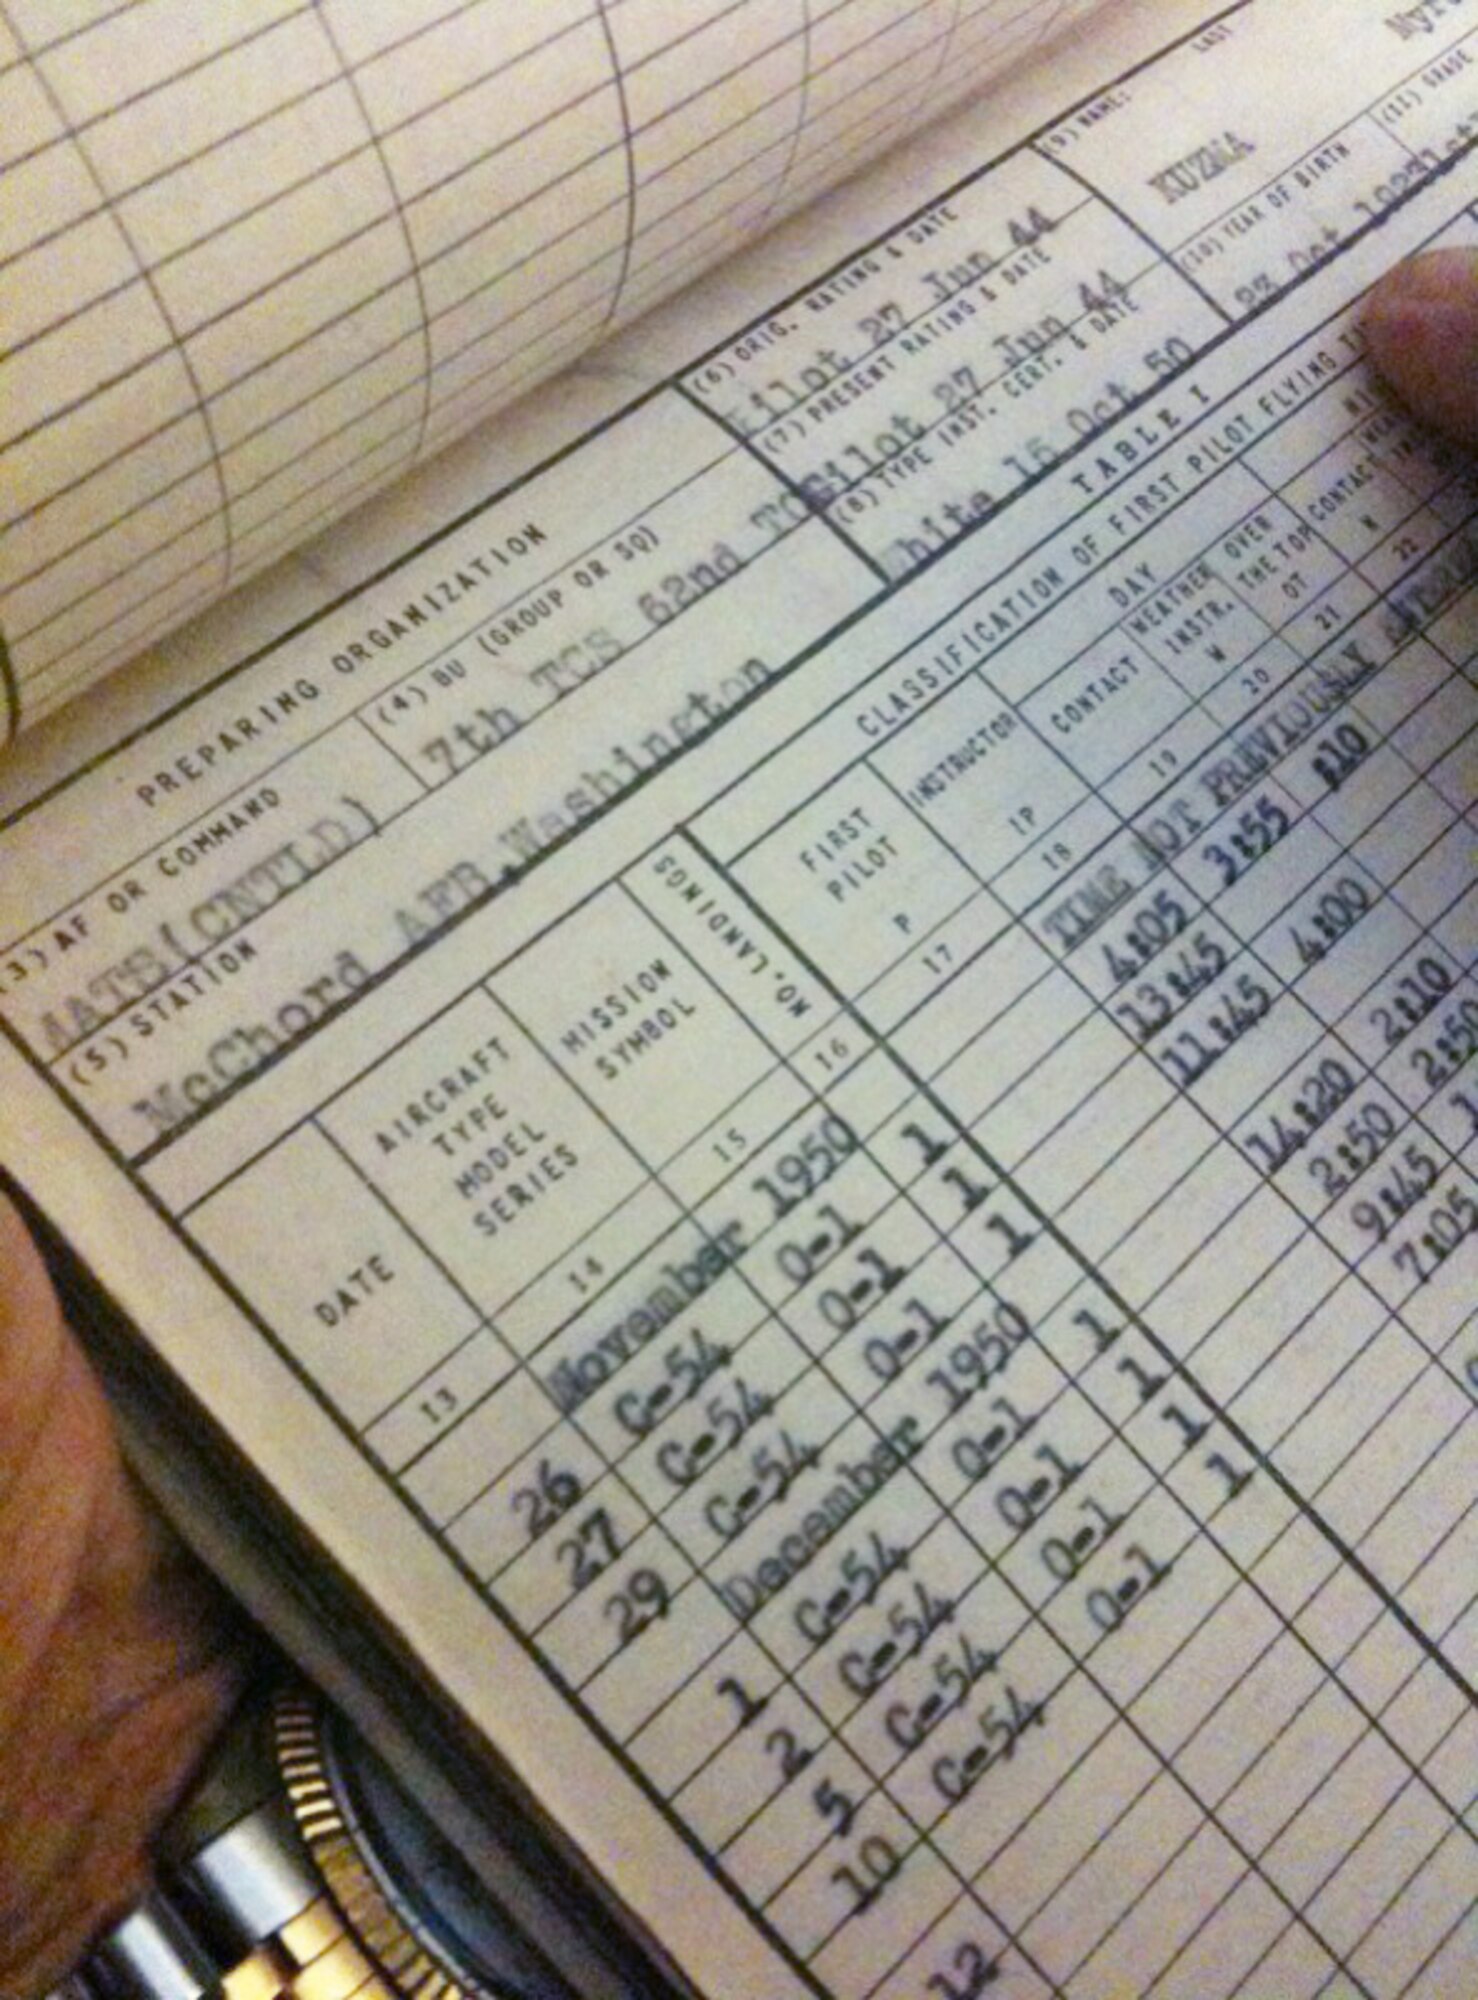 PREPARING ORGANIZATION
(3) AF OR COMMAND
MATS(CNTLD)
(4) BU (GROUP OR SQ)
7th TCS 62nd
(5) STATION
McChord AFB, Washington
(6) ORIG. RATING & DATE
Pilot 27 Jun 44
(7) PRESENT RATING & DATE
Pilot 27 Jun 44
(8) TYPE INST. CERT. & DATE
White 15 Oct 50
(9) NAME: LAST
KUZMA
(10) YEAR OF BIRTH
Oct
(11) GRADE
TABLE I
CLASSIFICATION OF FIRST PILOT FLYING
DATE
AIRCRAFT TYPE MODEL SERIES
MISSION SYMBOL
NO. LANDINGS
FIRST PILOT P
INSTRUCTOR IP
DAY
CONTACT
WEATHER INSTR. W
OVER THE TOP OT
CONTACT N
13 14 15 16 17 18 19 20 21 22
November 1950 TIME NOT PREVIOUSLY
26 C-54 O-1 1 4:05 3:55 :10
27 C-54 O-1 1 13:45
29 C-54 O-1 1 11:45 4:00
December 1950
1 C-54 O-1 1 14:20 2:10
2 C-54 O-1 1 2:50 2:50
5 C-54 O-1 1 9:45
10 C-54 O-1 1 7:05
12